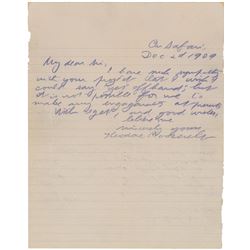 On Safari
Dec 2d 1909
My dear Sir,
I have much sympathy
with your project. I wish I
could say yes offhand; but
it is not possible for me to
make any engagements at present.
With regret, and good wishes,
believe me
sincerely yours
Theodore Roosevelt